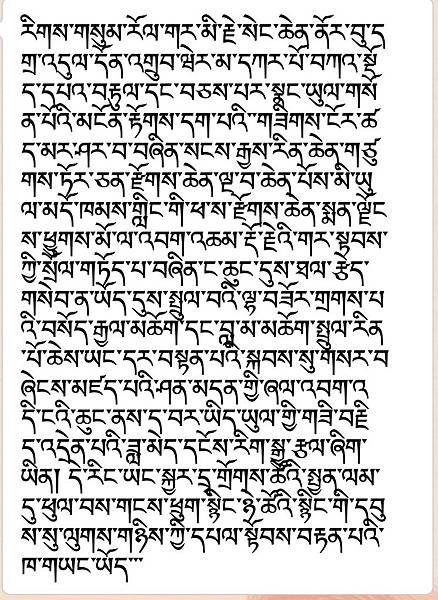 རིགས་གསུམ་རོལ་གར་མི་རྗེ་སེང་ཆེན་ནོར་བུ་ད
གྲ་འདུལ་དོན་འགྲུབ་ཝེར་མ་དཀར་པོ་བཀའ་སྡོ
ད་དཔའ་བརྟུལ་དང་བཅས་པར་སྣང་ཡུལ་གསོ
ན་པོའི་མངོན་རྟོགས་དག་པའི་གཟིགས་ངོར་ཚ
ད་མར་ཤར་བ་བཞིན་སངས་རྒྱས་རིན་ཆེན་གཙུ
གས་ཏོར་ཅན་རྫོགས་ཆེན་ལྔ་བ་ཆེན་པོས་མི་ཡུ
ལ་མདོ་ཁམས་གླིང་གི་ཕ་ས་རྫོགས་ཆེན་སྨན་ལྗོང
ས་ཕྱུགས་མོ་ལ་འབག་འཆམ་རྡོ་རྗེའི་གར་སྟབས་
ཀྱི་སྲོལ་གཏོད་པ་བཞིན་ང་ཆུང་དུས་ཐལ་རྩེད་
གསེབ་ན་ཡོད་དུས་སྤྲུལ་བའི་ལྷ་བཟོར་གྲགས་པ
འི་བསོད་རྒྱལ་མཆོག་དང་བླ་མ་མཆོག་སྤྲུལ་རིན
་པོ་ཆེས་ཡང་དར་བསྟན་པའི་སྐབས་སུ་གསར་བ
ཞེངས་མཛད་པའི་ཤན་མདན་གྱི་ཞལ་འབག་འ
དི་ངའི་ཆུང་ནས་ད་བར་ཡིད་ཡུལ་གྱི་གཟི་བརྗི
ད་འདྲེན་པའི་ཟླ་མེད་དངོས་རིག་སྒྱུ་རྩལ་ཞིག་
ཡིན། དེ་རིང་ཡང་སྐྱར་དྭ་གྲོགས་ཚོའི་སྤྱན་ལམ་
དུ་ཕུལ་བས་གངས་ཕྲུག་སྙིང་ཉེ་ཚོའི་སྙིང་གི་དབུ
ས་སུ་ལུགས་གཉིས་ཀྱི་དཔལ་སྟོབས་བརྟན་པའི་
ཁ་གཡང་ཡོད་་་